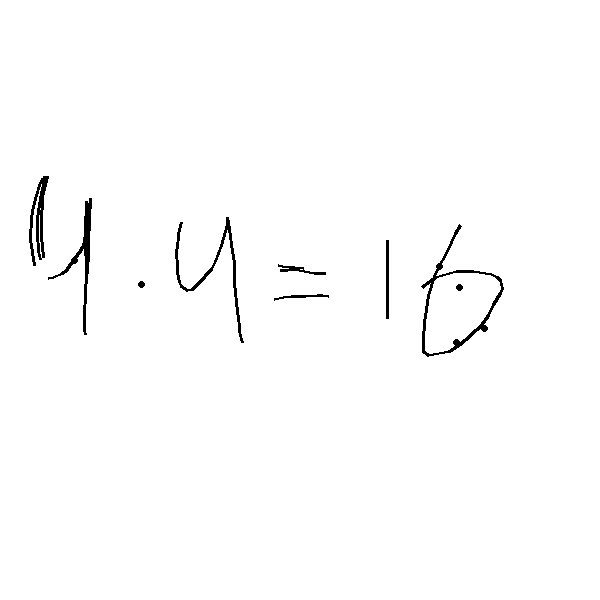 4 · 4 = 16